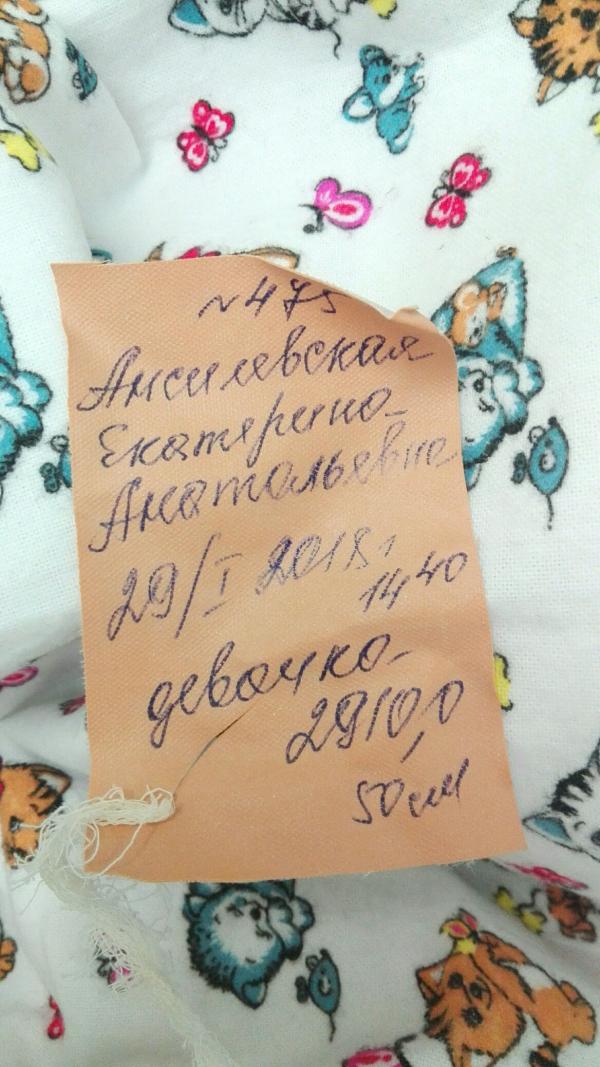 №475
Ансилевская
Екатерина
Анатольевна
29/I 2018г
14 40
девочка
2910,0
50 см